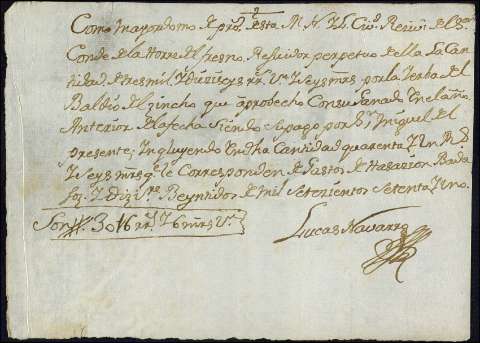 Como mayordomo de prop.s de esta M. N. y L. Ciu.d Recivi del S.r
Conde de la torre del fresno Regidor perpetuo de ella La Can-
tidad de tres mil y diez y seys rr.s v.n y seys mrs por la Yerba del
Baldio del zincho que aprobecho con su Ganado en el año
Anterior de la fecha siendo su pago por S.n Miguel del
presente; Yncluyendo en dha Cantidad quarenta y un R.s
y seys mrs q.e le Corresponden de gastos de tasazion Bada-
joz y Diz.re Beyntidos de mil setezientos setenta y uno
Son 3016 rr.s y 6 mrs v.n
Lucas Navarro